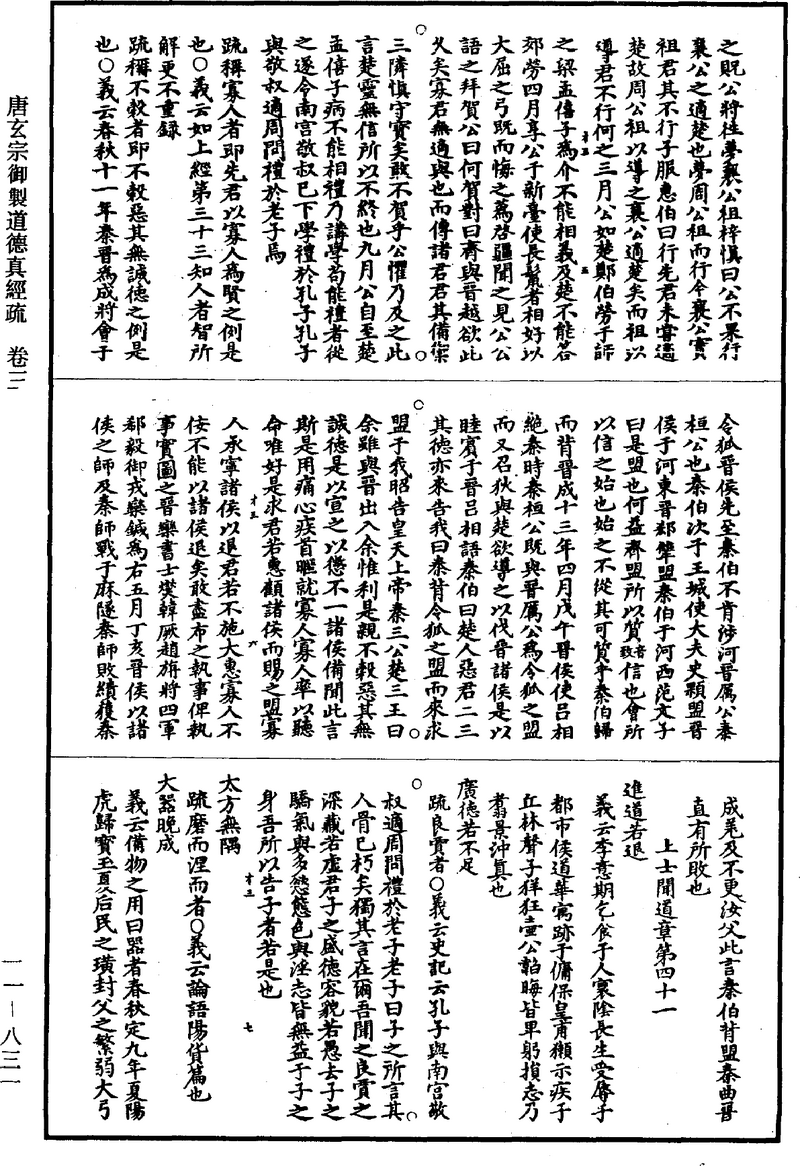 唐玄宗御製道德真經疏　卷三
之貺公將往夢襄公祖梓慎曰公不果行
襄公之適楚也夢周公祖而行今襄公實
祖君其不行子服惠伯曰行先君未嘗適
楚故周公祖以導之襄公適楚矣而祖以
導君不行何之三月公如楚鄭伯勞于師
之梁孟僖子為介不能相義及楚不能答
郊勞四月享公于新臺使長鬣者相好以
大屈之弓既而悔之薳啓疆聞之見公公
語之拜賀公曰何賀對曰齊與晉越欲此
久矣寡君無適與也而傳諸君君其備禦
三隣慎守寶矣敢不賀乎公懼乃反之此
言楚靈無信所以不終也九月公自至楚
孟僖子病不能相禮乃講學苟能禮者從
之遂令南宫敬叔已下學禮於孔子孔子
與敬叔適周問禮於老子焉
疏稱寡人者即先君以寡人為賢之例是
也〇義云如上經第三十三知人者智所
解更不重録
疏稱不穀者即不穀惡其無誠德之例是
也〇義云春秋十一年秦晉為成將會于
令狐晉侯先至秦伯不肯涉河晉厲公秦
桓公也秦伯次于王城使大夫史顆盟晉
侯于河東晉郄犨盟秦伯于河西范文子
曰是盟也何益齊盟所以質音致信也會所
以信之始也始之不從其可質乎秦伯歸
而背晉成十三年四月戊午晉侯使吕相
絶秦時秦桓公既與晉厲公為令狐之盟
而又召狄與楚欲導之以伐晉諸侯是以
睦賓于晉吕相語秦伯曰楚人惡君二三
其德亦來告我曰秦背令狐之盟而來求
盟于我昭告皇天上帝秦三公楚三王曰
余雖與晉出入余惟利是親不穀惡其無
誠德是以宣之以懲不一諸侯備聞此言
斯是用痛心疾首暱就寡人寡人率以聽
命唯好是求君若惠顧諸侯而賜之盟寡
人承寧諸侯以退君若不施大惠寡人不
侫不能以諸侯退矣敢盡布之執事俾執
事實圖之晉欒書士燮韓厥趙旃將四軍
郄毅御戎欒鍼為右五月丁亥晉侯以諸
侯之師及秦師戰于麻隧秦師敗績獲秦
成差及不更汝父此言秦伯背盟秦曲晉
直有所敗也
上士聞道章第四十一
進道若退
義云李意期乞食于人寰陰長生受辱于
都市侯道華寓跡于傭保皇甫㶚示疾于
丘林聲子徉狂壺公韜晦皆卑躬損志乃
翥景沖真也
廣德若不足
疏良賈者〇義云史記云孔子與南宫敬
叔適周問禮於老子老子曰子之所言其
人骨已朽矣獨其言在爾吾聞之良賈之
深藏若虛君子之盛德容貌若愚去子之
驕氣與多慾態色與淫志皆無益于子之
身吾所以告子者若是也
太方無隅
疏磨而湼而者〇義云論語陽貨篇也
大器晚成
義云備物之用曰器者春秋定九年夏陽
虎歸寶玉夏后氏之璜封父之繁弱大弓
一一—八三一